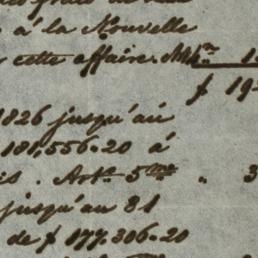 à la Nouvelle
cette affaire. 1
$ 19
1826 jusqu'au
181,556.20 à
is. Art. 5ème " 3
jusqu'au 31
de $ 177.306.20